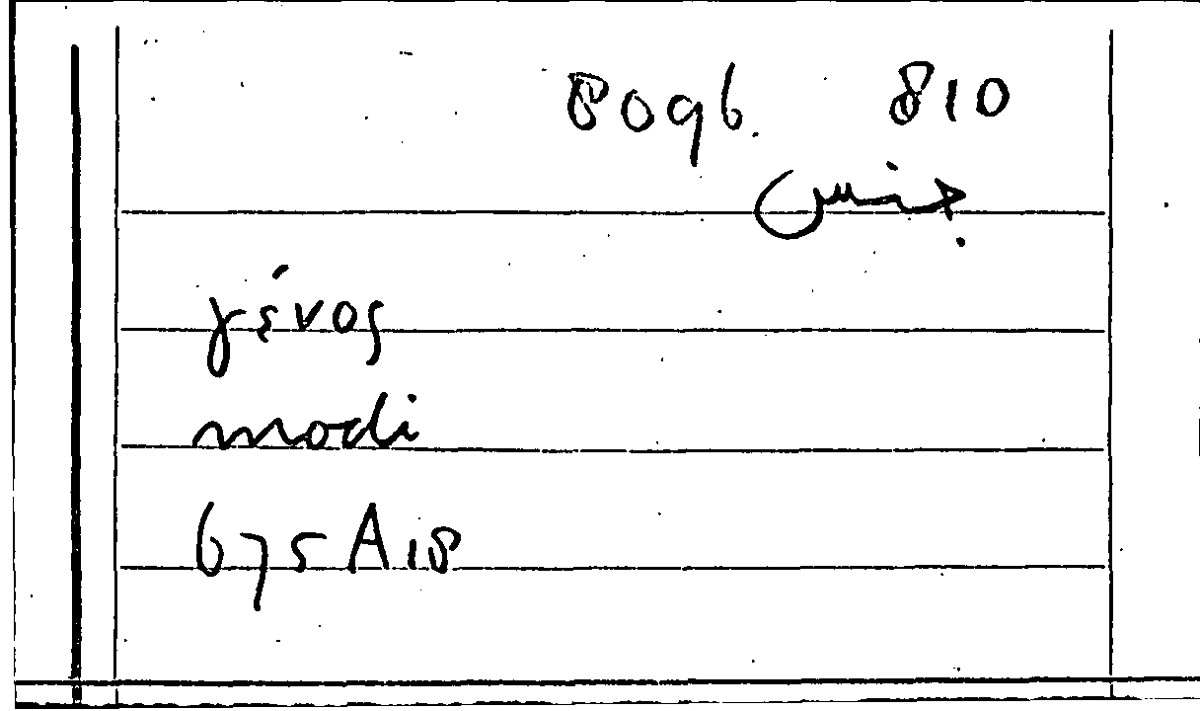 8096. 810
جنس
γένος
modi
675A18